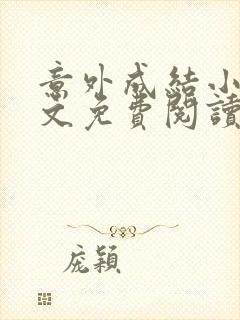 意外成結小
文免費閱讀
庞穎